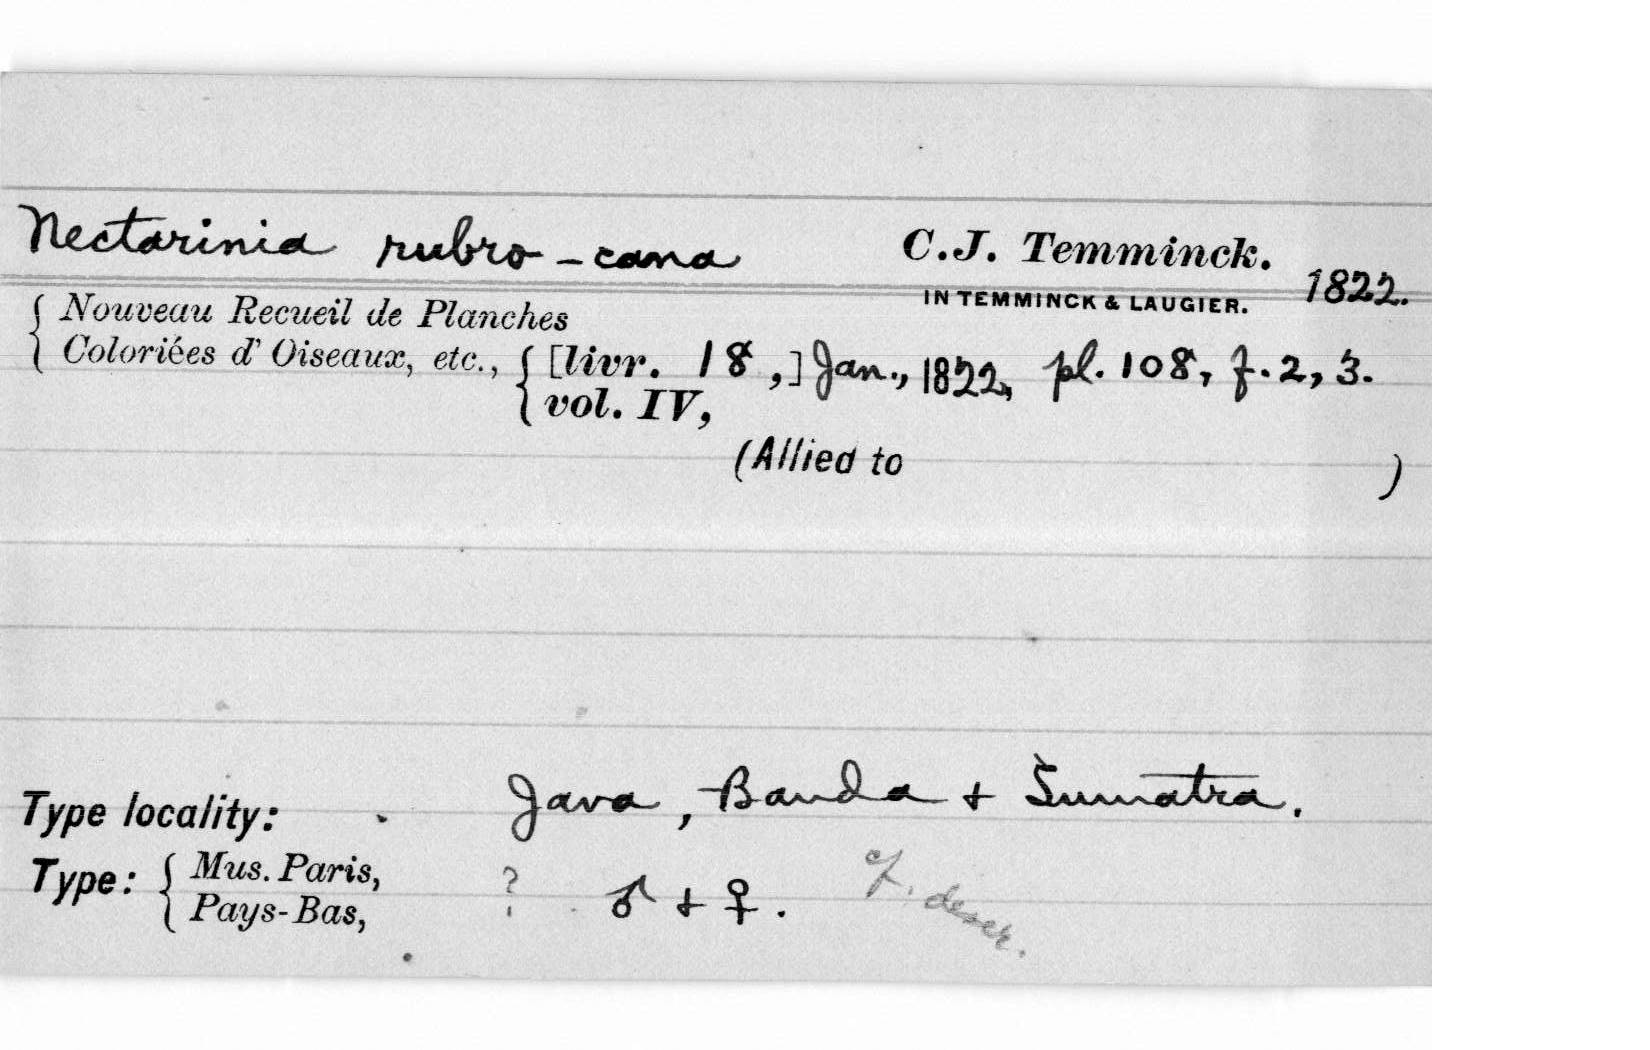 Nectarinia rubro-cana C.J. Temminck. 1822.
IN TEMMINCK & LAUGIER.
{ Nouveau Recueil de Planches
Coloriées d' Oiseaux, etc., { [livr. 18,] Jan., 1822, pl. 108, f. 2, 3.
vol. IV,
(Allied to )
Type locality: Java, Banda + Sumatra.
Type: { Mus. Paris, ? ♂ + ♀. Cf. descr.
Pays-Bas,